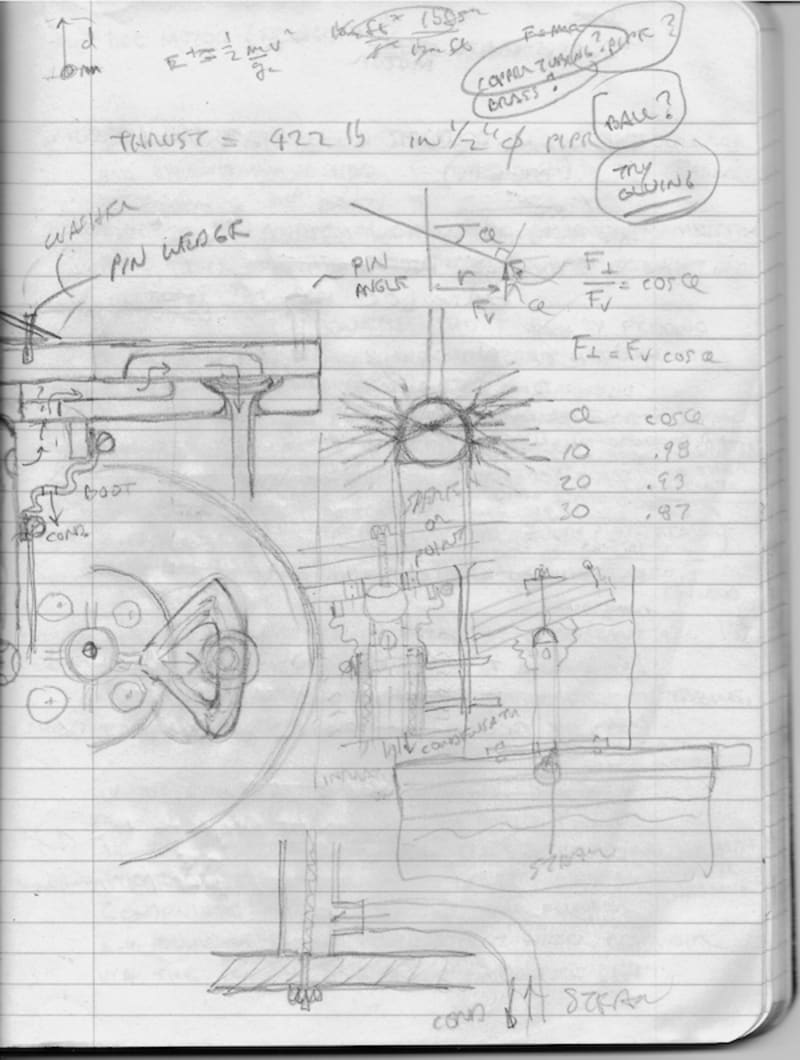 d
m
E = 1/2 mv²/gc
COPPER TUBING? PIPE?
BRASS?
THRUST = .422 lb IN 1/2" ϕ PIPE
BALL?
TRY
GLUING
WASHER
PIN WEDGE
PIN
ANGLE
α
r
Fv
α
F⊥/Fv = cos α
F⊥ = Fv cos α
α cosα
10 .98
20 .93
30 .87
BOOT
COND
OR
POINT
CONDENSATE
STEAM
COND STEAM